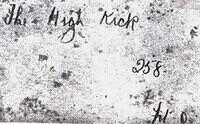 The High Kick
258